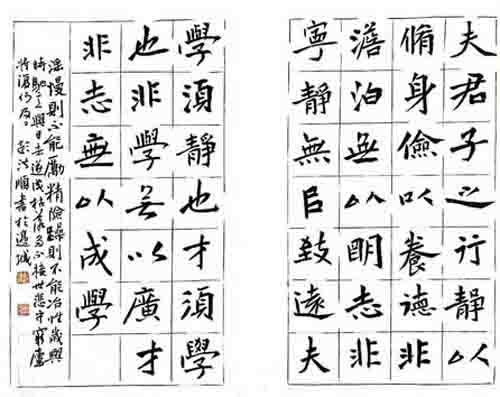 夫君子之行靜以
脩身儉以養德非
澹泊無以明志非
寧靜無㠯致遠夫
學須靜也才須學
也非學無以廣才
非志無以成學
淫慢則不能勵精險躁則不能冶性歲與
時馳意與日去遂成枯落多不接世悲守窮廬
將復何及 洪順書於邊城